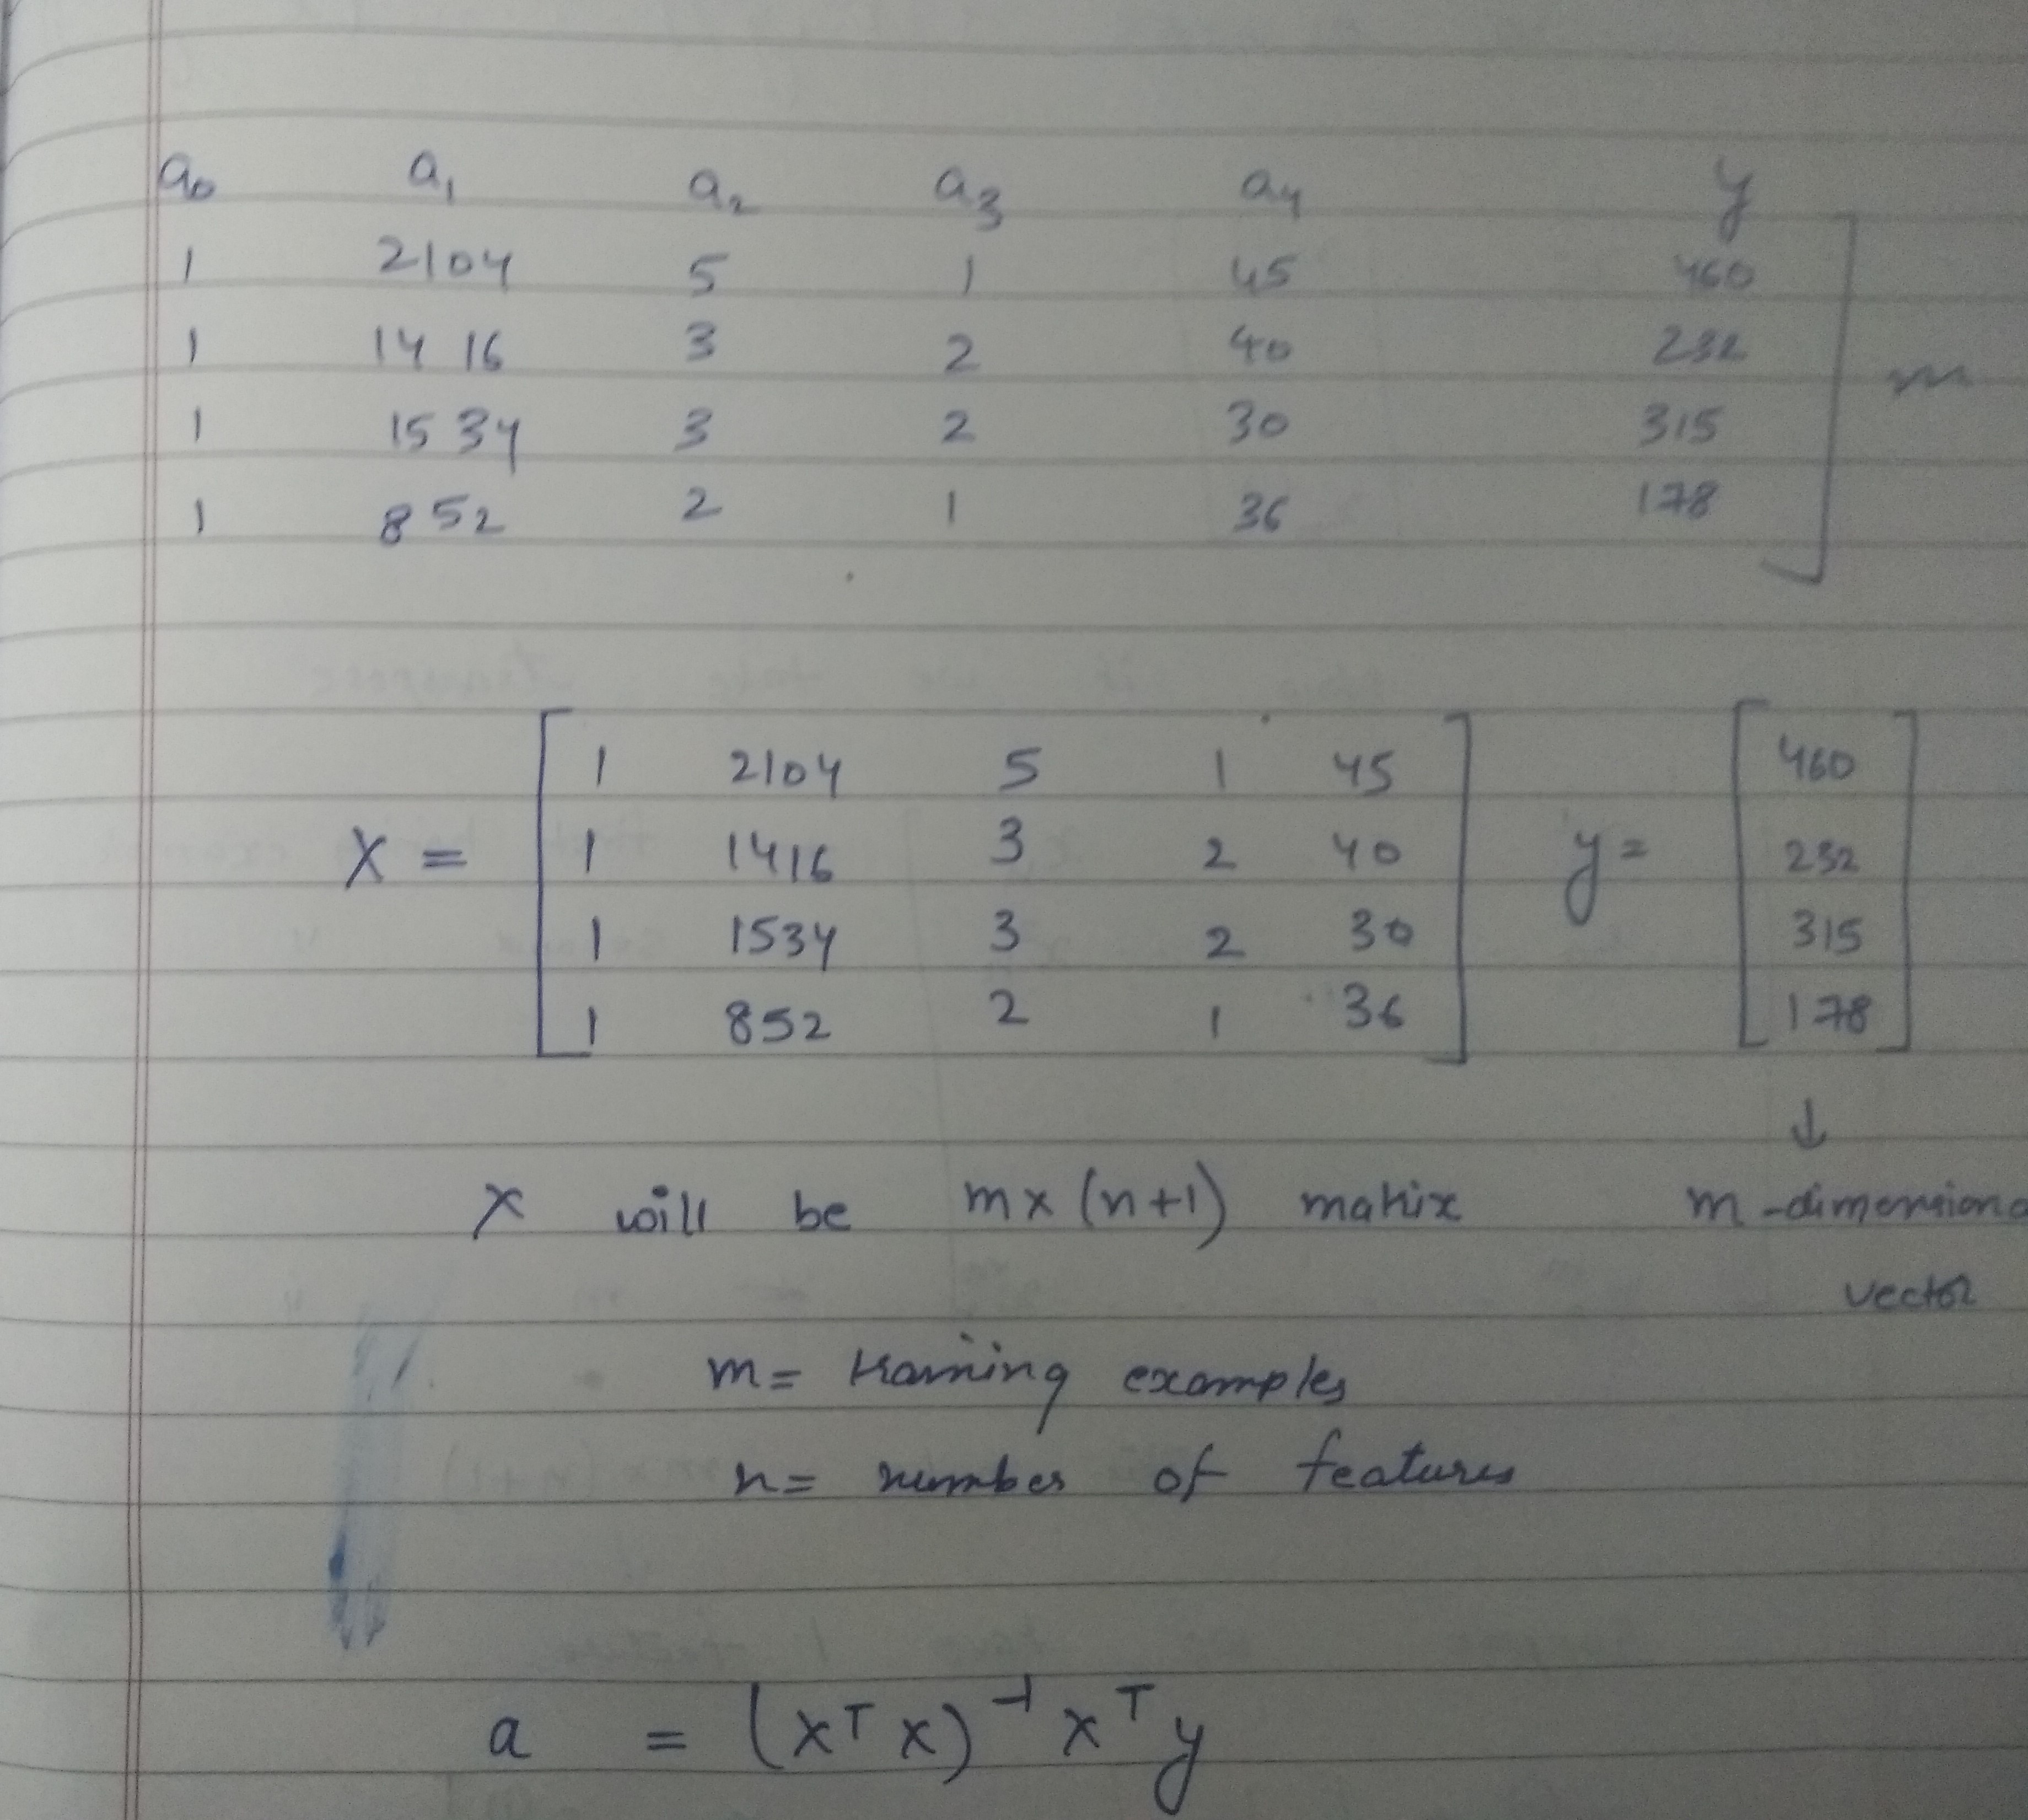 a₀ a₁ a₂ a₃ a₄ y
1 2104 5 1 45 460
1 1416 3 2 40 232
1 1534 3 2 30 315
1 852 2 1 36 178
m
X = [ 1 2104 5 1 45 y = [ 460
1 1416 3 2 40 232
1 1534 3 2 30 315
1 852 2 1 36 ] 178 ]
↓
X will be m x (n+1) matrix m-dimensiona
vector
m = training examples
n = number of features
a = (X^T X)^-1 X^T y